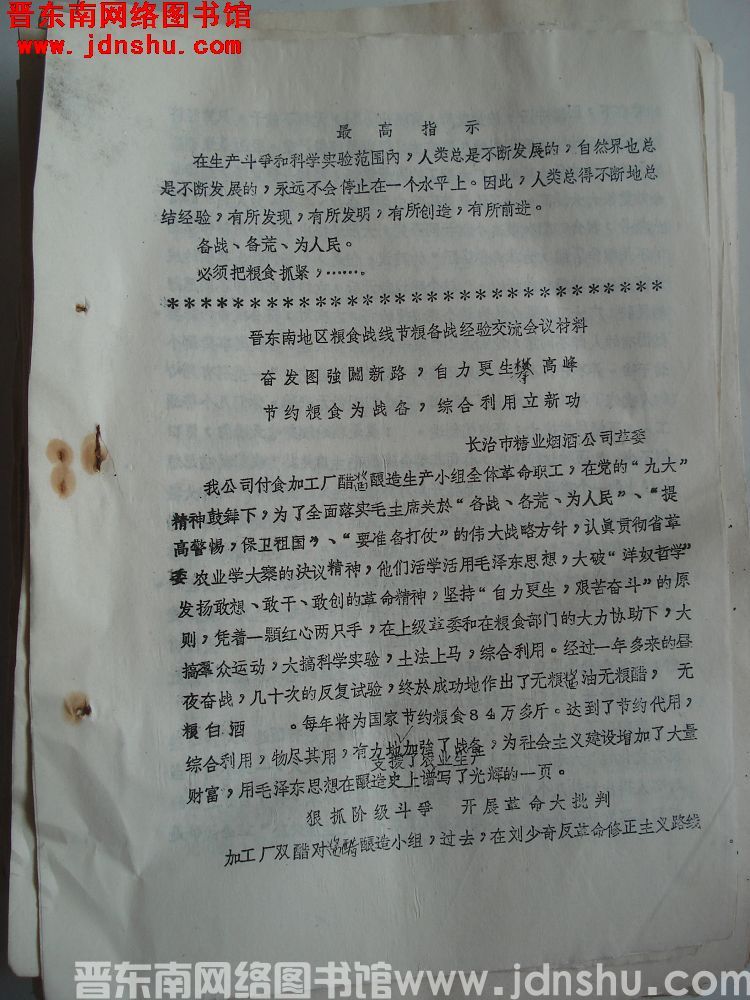 晋东南网络图书馆
www.jdnshu.com
最高指示
在生产斗爭和科学实验范围内，人类总是不断发展的，自然界也总
是不断发展的，永远不会停止在一个水平上。因此，人类总得不断地总
结经验，有所发现，有所发明，有所创造，有所前进。
备战、备荒、为人民。
必须把粮食抓紧，……。
************************************
晋东南地区粮食战线节粮备战经验交流会议材料
奋发图強闖新路，自力更生攀高峰
节约粮食为战备，综合利用立新功
长治市糖业烟酒公司革委
我公司付食加工厂醋酱釀造生产小组全体革命职工，在党的“九大”
精神鼓舞下，为了全面落实毛主席关於“备战、备荒、为人民”、“提
高警惕，保卫祖国”、“要准备打仗”的伟大战略方针，认眞贯彻省革
委农业学大寨的决议精神，他们活学活用毛泽东思想，大破“洋奴哲学”
发扬敢想、敢干、敢创的革命精神，坚持“自力更生，艰苦奋斗”的原
则，凭着一顆红心两只手，在上级革委和在粮食部门的大力协助下，大
搞羣众运动，大搞科学实验，土法上马，综合利用。经过一年多来的昼
夜奋战，几十次的反复试验，终於成功地作出了无粮酱油无粮醋，无
粮白酒。每年将为国家节约粮食84万多斤。达到了节约代用，
综合利用，物尽其用，有力地加強了战备，为社会主义建设增加了大量
支援了农业生产
财富，用毛泽东思想在釀造史上谱写了光辉的一页。
狠抓阶级斗爭 开展革命大批判
加工厂双醋对酱醋釀造小组，过去，在刘少奇反革命修正主义路线
晋东南网络图书馆www.jdnshu.com